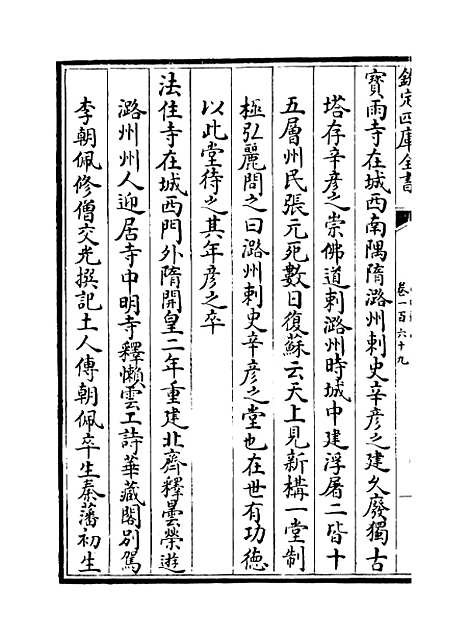 欽定四庫全書
卷一百六十九
寶雨寺在城西南隅隋潞州刺史辛彦之建久廢獨古
塔存辛彦之崇佛道刺潞州時城中建浮屠二皆十
五層州民張元死數日復蘇云天上見新構一堂制
極弘麗問之曰潞州刺史辛彦之堂也在世有功德
以此堂待之其年彦之卒
法住寺在城西門外隋開皇二年重建北齊釋曇榮遊
潞州州人迎居寺中明寺釋懶雲工詩華藏閣别駕
李朝佩修僧交光撰記土人傳朝佩卒生秦藩初生